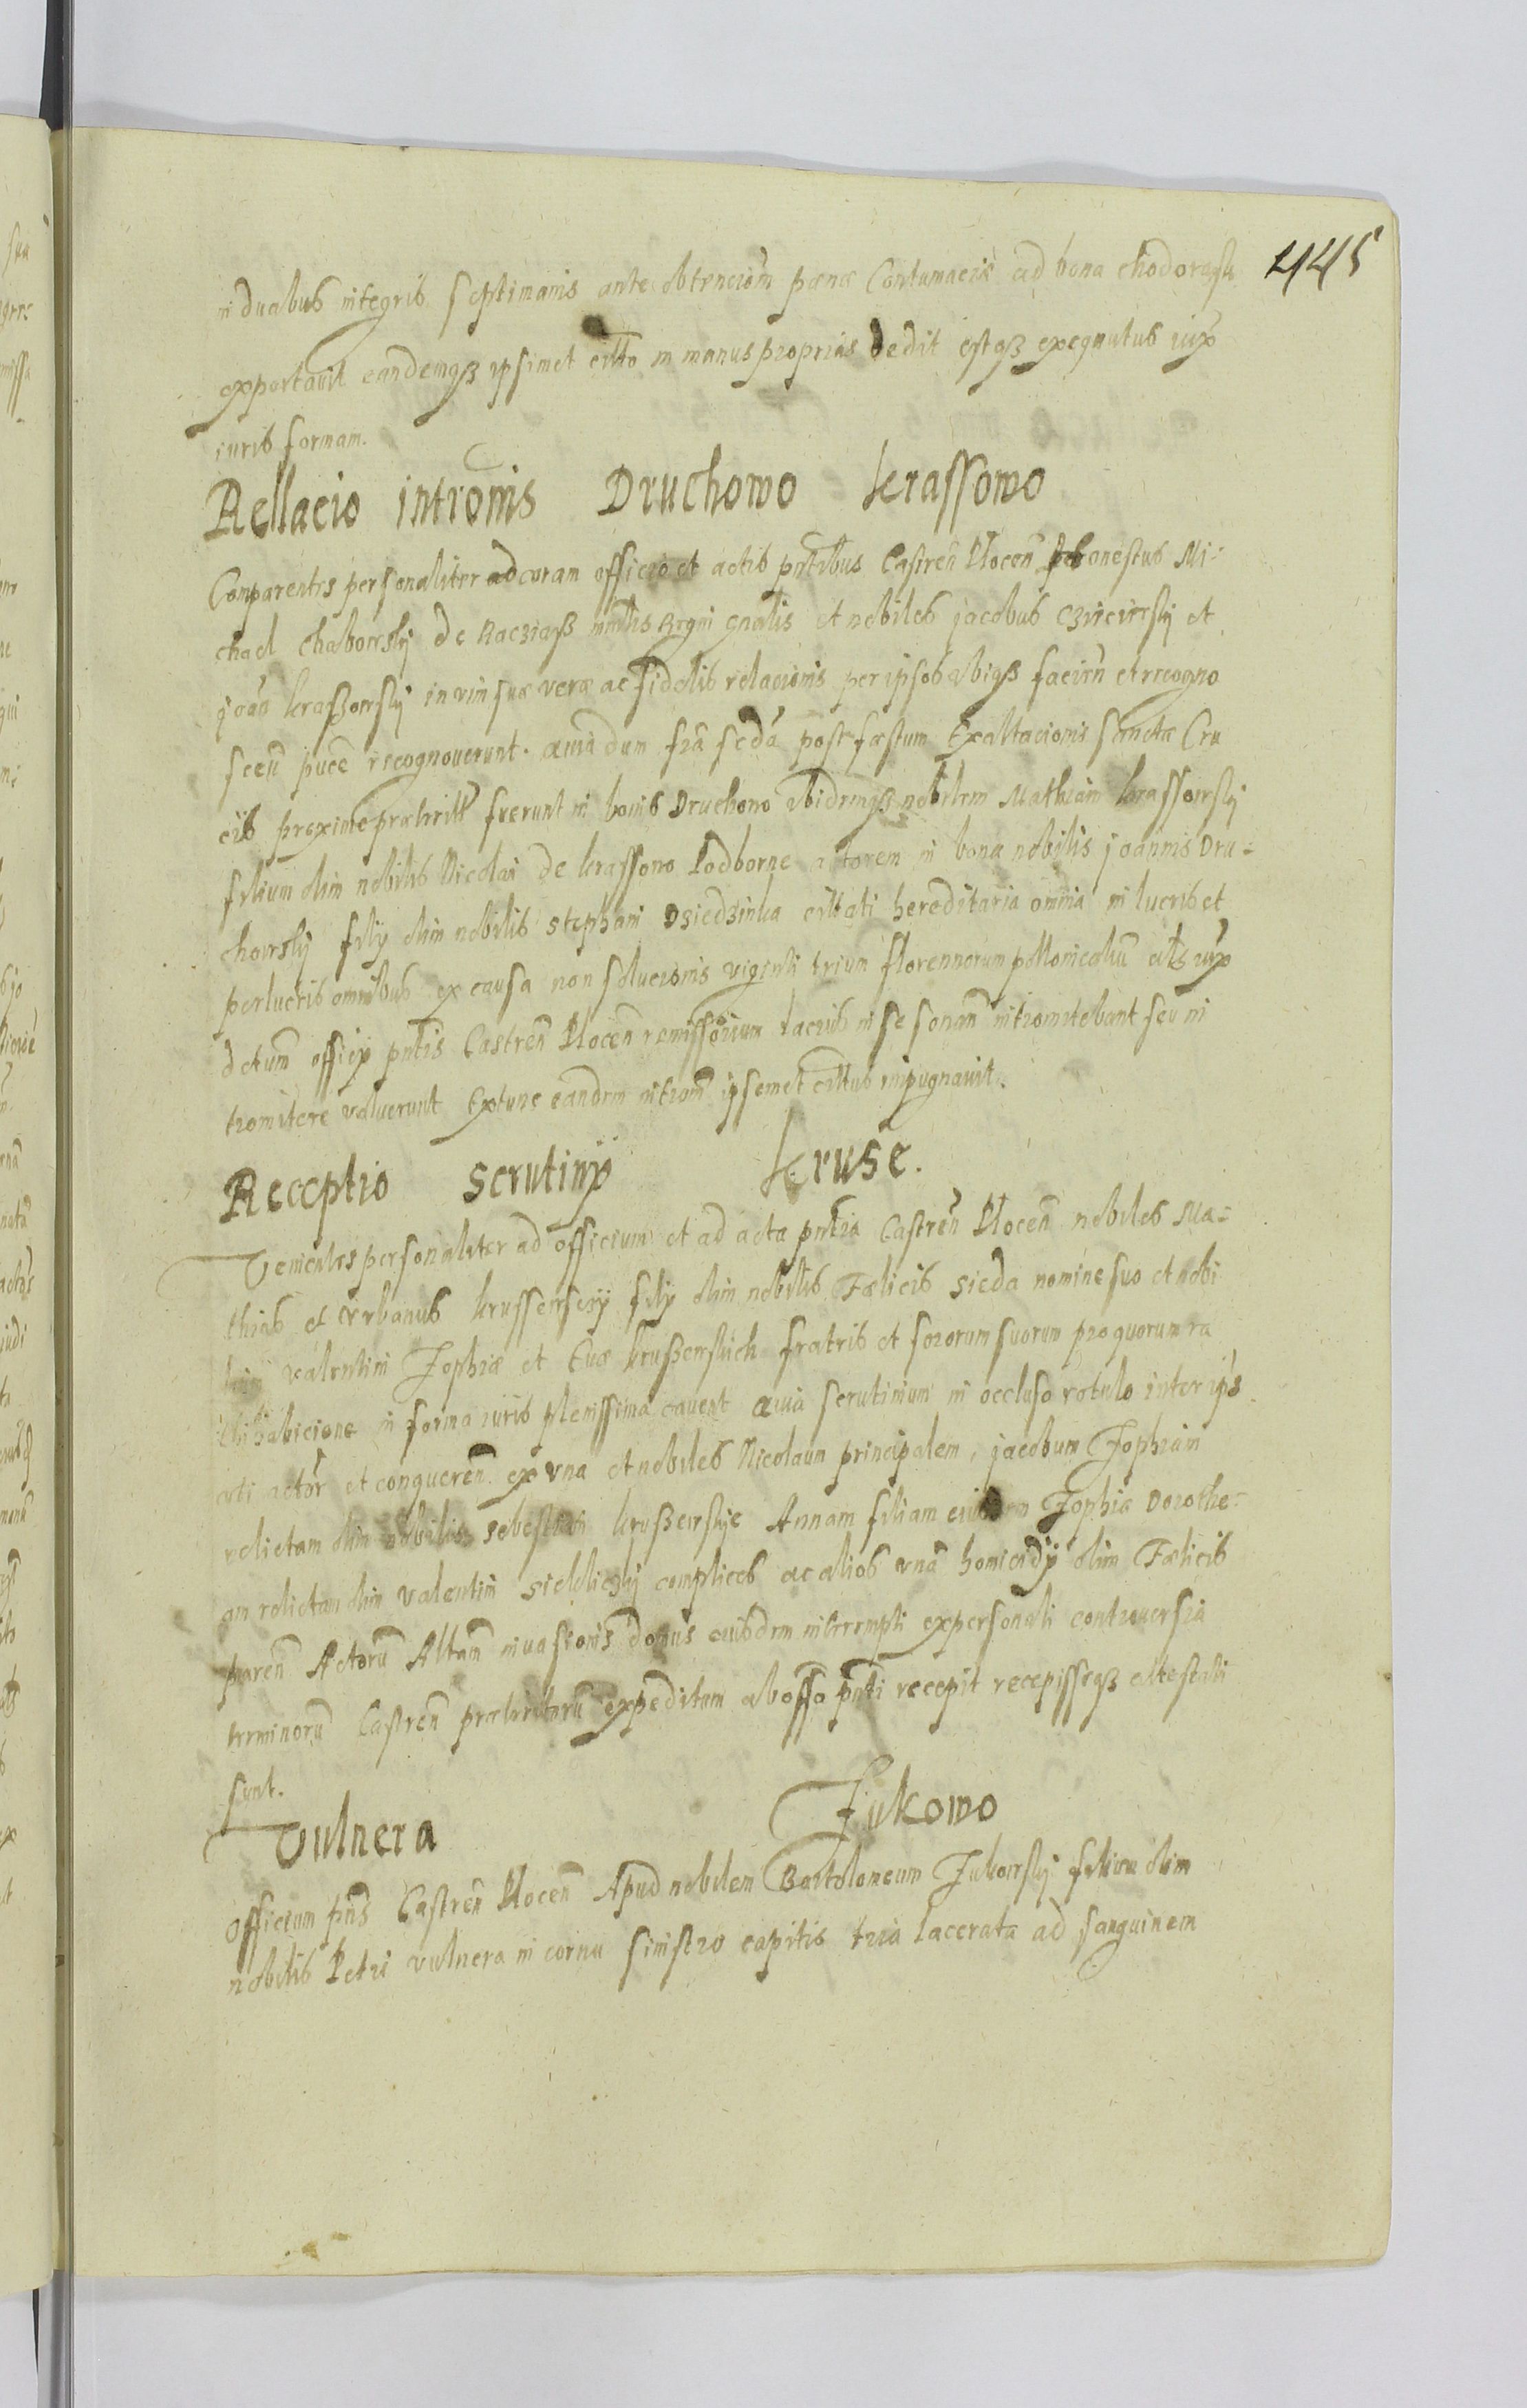 445
in duabus integris septimanis ante obtencioem pœnæ Contumaciæ ad bona chodorąsk
exportauit eandemqȝ ipsimet citto in manus proprias dedit estqȝ exeqnutus iux
iuris formam.
Rellacio introms Druchowo krassowo
Comparentes personaliter ad coram officio et actis pntibus Castren Plocen honestus Mi-
chael chaborsky de Raciąsz mlis Regni gnalis et nobiles jacobus et
joan kraßowsky in vim suæ veræ ac fidelis relacionis per ipsos ibiqȝ facien et recogno
scen recognouerunt. quia dum fria secda post fæstum Exaltacionis sanctæ Cru
cis proxime præterit fuerunt in bonis Druchono ibidemqȝ nobilem Mathiam krassowsky
filium olim nobilis Nicolai de krassowo Podborne actorem in bona nobilis joannis Dru-
chowsky fily olim nobilis stephani Dsiedzinka cittati hereditaria omnia in lucris et
perlucris omnibus ex causa non solucionis viginti trium florennorum pollonicaliu als iux
dctum officy pntis Castren Plocen remissorium lacius in se sonan intromitebant seu in
tromitere valuerunt Extunc eandem introm ipsemet cittus inpugnauit.
Receptio scrutiny kruse.
Venientes personaliter ad officium et ad acta pntia Castren Plocen nobiles Ma-
thias et vrbanus krussewscy fily olim nobilis Fælicis sieda nomine suo et nobi
lium valentini Zophiæ et Euæ krußewskich fratris et sororum suorum pro quorum ra
tihabicione in forma iuris plenissima cauent quia scrutinium in occluso rotulo inter ips
uti actor et conqueren ex vna et nobiles Nicolaum principalem, jacobum Zophiam
relictam olim nobilis sebestiani krußewskie Annam filiam eiusdem Zophiæ Dorothe-
am relictam olim valentini siedlicky complices ac alios vna homicidy olim Fælicis
paren Actoru Altam inuasionis domus eiusdem interempti ex personali controuersia
terminoru Castren præteritoru expeditum ab offo pnti recepit recepisseqȝ attestati
sunt.
Vulnera Zukowo
Officium pns Castren Plocen Apud nobilem Bartolomeum Zukowsky filium olim
nobilis Petri vulnera in cornu sinistro capitis tria lacerata ad sanguinem